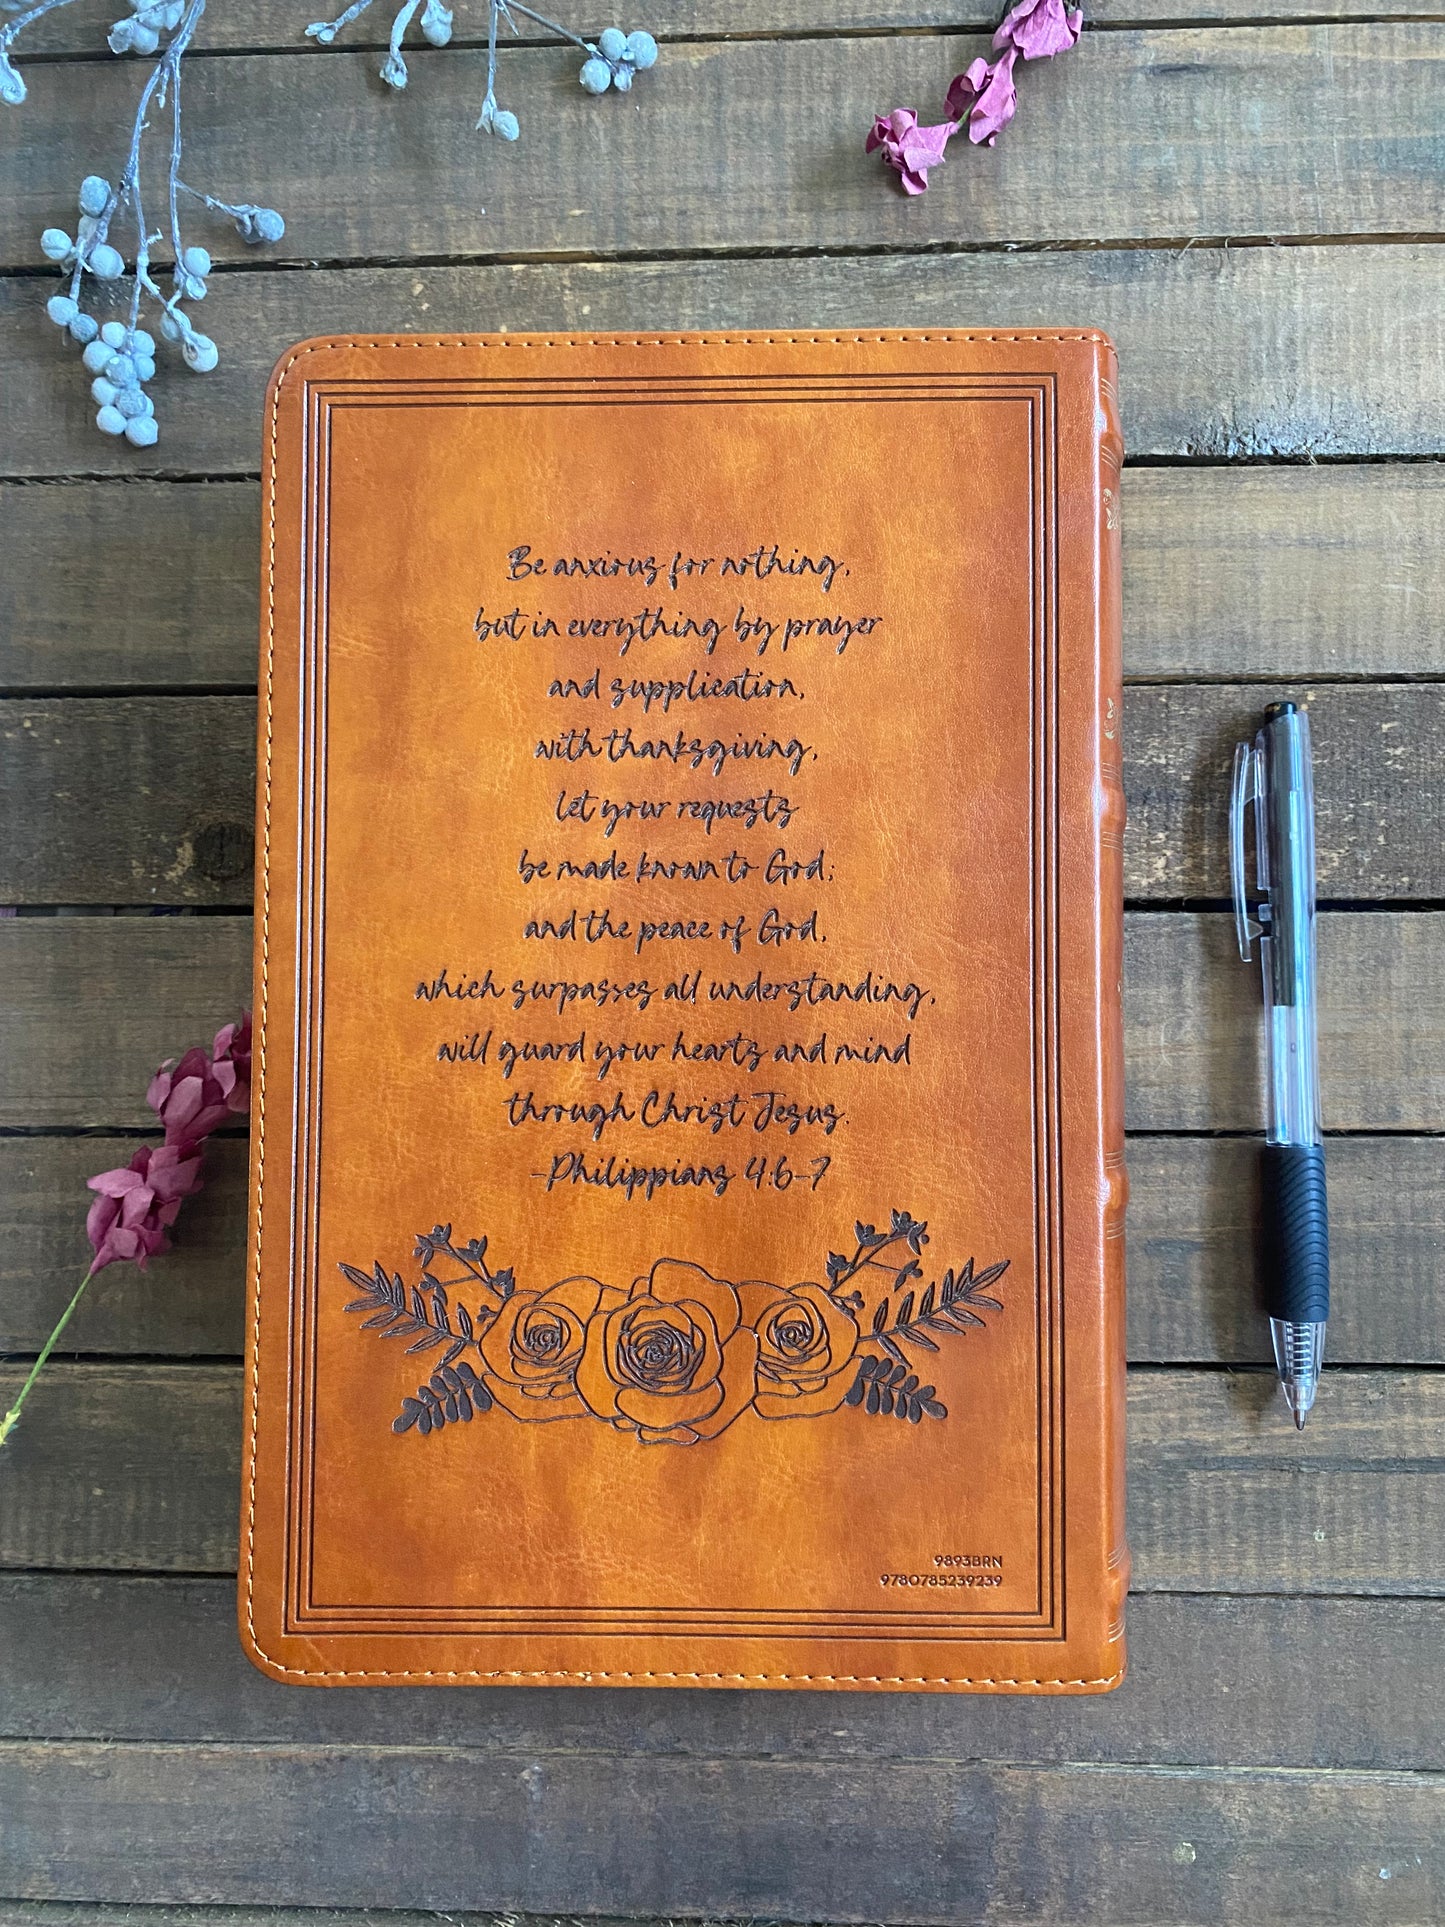 Be anxious for nothing,
but in everything by prayer
and supplication,
with thanksgiving,
let your requests
be made known to God;
and the peace of God,
which surpasses all understanding,
will guard your hearts and mind
through Christ Jesus.
-Philippians 4:6-7
9893BRN
9780785239239